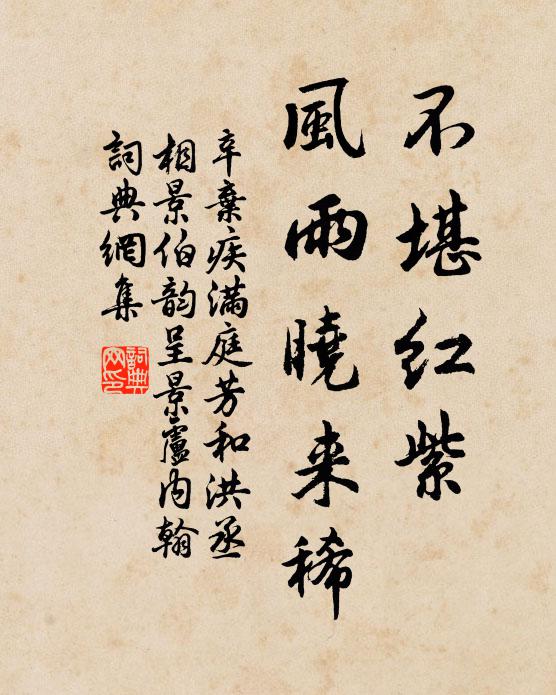 不堪红紫
風雨曉来稀
辛棄疾滿庭芳和洪丞
相景伯韵呈景盧内翰
詞典網集
詞典網印